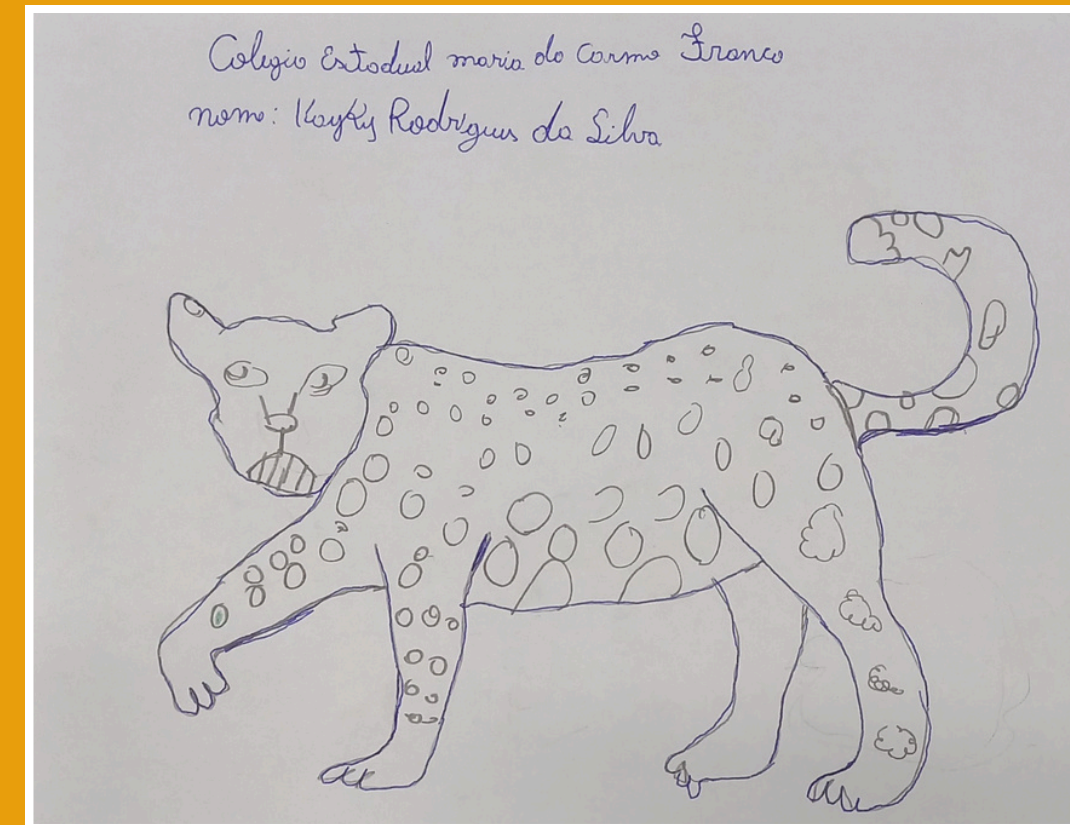 Colegio Estadual maria do Carmo Franco
nome: Kayky Rodrigues da Silva